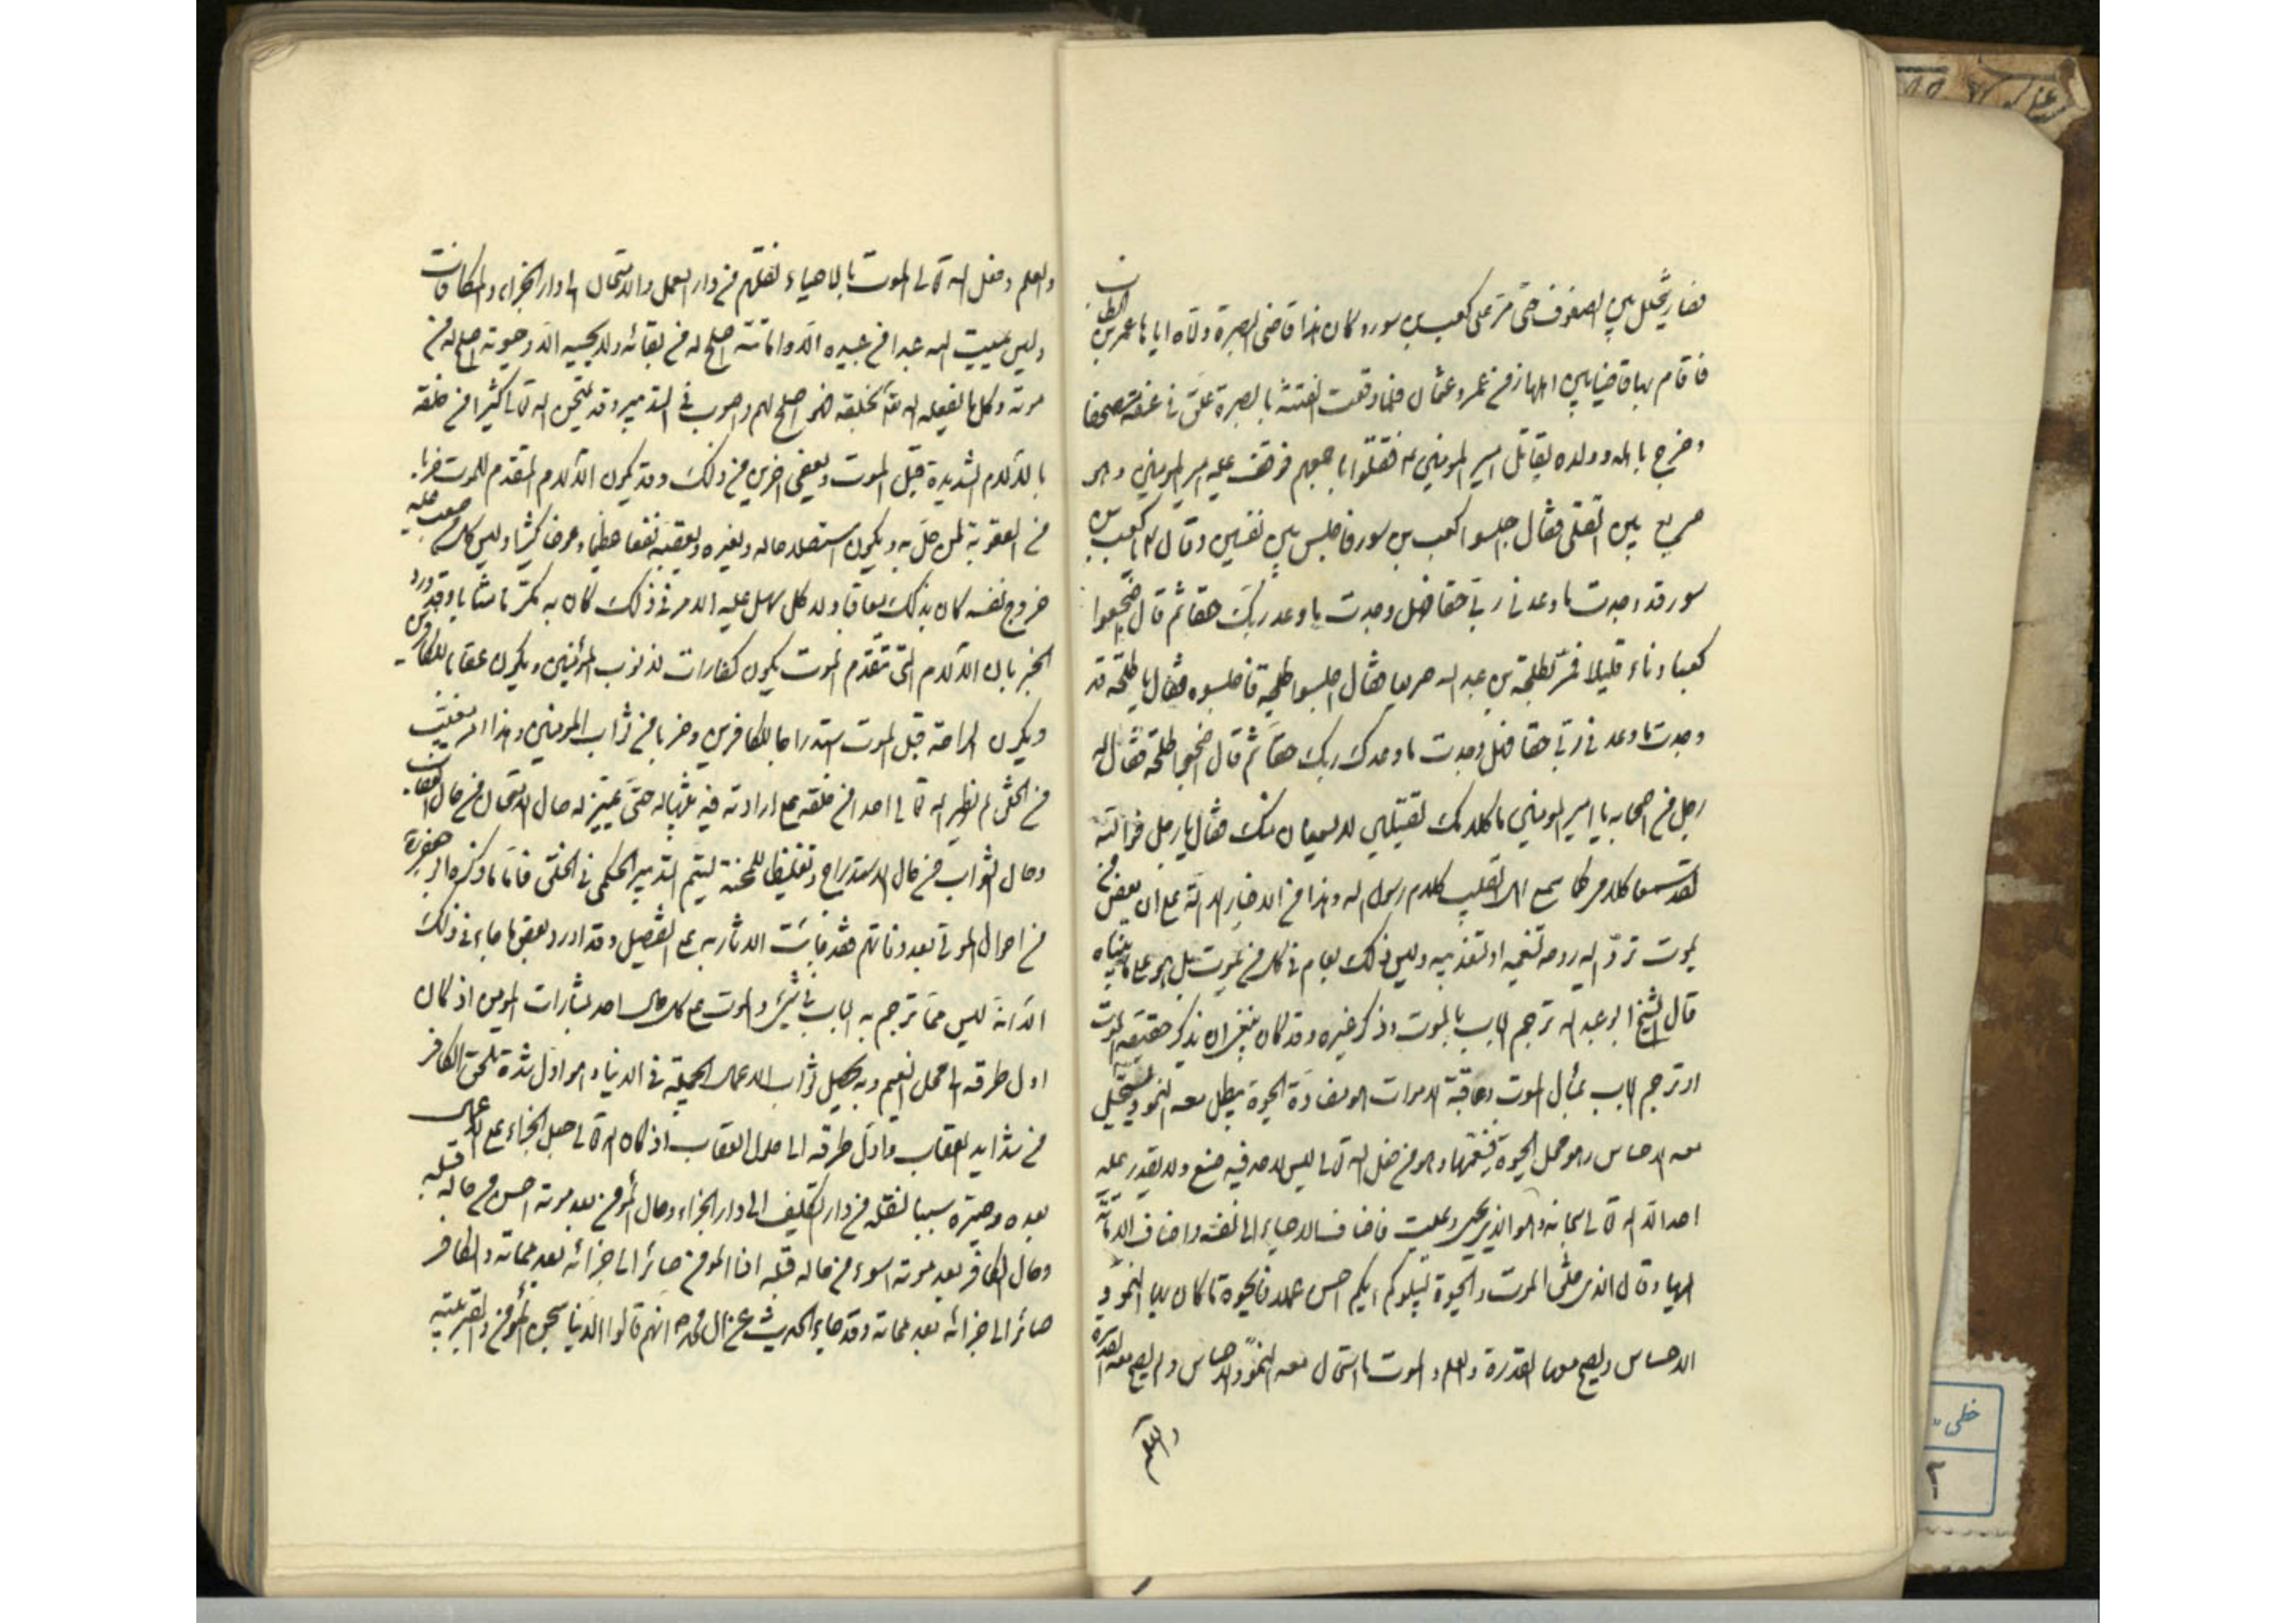 فصار يتخلل بين الصفوف حتى مر على كعب بن سورة وكان هذا قاضي البصرة ولاه اياها عمر بن الخطاب
فاقام بها قاضيا بين اهلها زمن عمر وعثمان فلما وقعت الفتنة بالبصرة علق في عنقه مصحفا
وخرج باهله وولده يقاتل امير المؤمنين ع فقتلوا باجمعهم فوقف عليه امير المؤمنين وهو
صريع بين القتلى فقال اجلسوا كعب بن سور فاجلس بين نفسين وقال له يا كعب بن
سور قد وجدت ما وعدني ربي حقا فهل وجدت ما وعد ربك حقا ثم قال اضجعوا
كعبا وناء قليلا فمر بطلحة بن عبد الله صريعا فقال اجلسوا طلحة فاجلسوه فقال يا طلحة قد
وجدت ما وعدني ربي حقا فهل وجدت ما وعدك ربك حقا ثم قال اضجعوا طلحة فقال له
رجل من اصحابه يا امير المؤمنين ما كلامك لقتيلين لا يسمعان منك فقال يا رجل فوالله
لقد سمعا كلامي كما سمع اهل القليب كلام رسول الله وهذا من الاخبار الدالة على ان بعض من
يموت ترد اليه روحه لتنعيمه او لتعذيبه وليس ذلك بعام في كل من يموت بل هو على ما بيناه
قال الشيخ ابو عبد الله ترجم الباب بالموت وذكر غيره وقد كان ينبغي ان يذكر حقيقة الموت
او ترجم الباب بمآل الموت وعاقبة الاموات الموت يضادة الحيوة يبطل معه النمو ويستحيل
معه الاحساس وهو محل الحيوة فينفيها وهو من فعل الله تعالى ليس لاحد فيه صنع ولا يقدر عليه
احد الا الله تعالى سبحانه وهو الذي يحيي ويميت فاضاف الاحياء الى نفسه واضاف الاماتة
اليها وقال الذي خلق الموت والحيوة ليبلوكم ايكم احسن عملا فالحيوة ما كان بها النمو و
الاحساس ويصح معها القدرة والعلم والموت ما استحال معه النمو والاحساس ولم يصح معه القدرة
والعلم
والعلم وفعل الله تعالى الموت بالاحياء لنقلهم من دار العمل والامتحان الى دار الجزاء والمكافات
وليس يميت الله عبدا من عبيده الا واماتته اصلح له من بقائه ولا يحييه الا وحيوته اصلح له من
موته وكل ما يفعله الله تعالى بخلقه فهو اصلح لهم واصوب في التدبير وقد يمتحن الله تعالى كثيرا من خلقه
بالالام الشديدة قبل الموت ويعفي اخرين من ذلك وقد يكون الالام المتقدم للموت ضربا
من العقوبة لمن حل به ويكون استصلاحا له ولغيره ويعقبه نفعا عظيما وعوضا كثيرا وليس كل من صعب عليه
خروج نفسه كان بذلك معاقبا ولا كل من سهل عليه الامر في ذلك كان به مكرما مثابا وقد ورد
الخبر بان الالام التي تتقدم الموت يكون كفارات لذنوب المؤمنين ويكون عقابا للكافرين
ويكون الراحة قبل الموت استدراجا للكافرين وضربا من ثواب المؤمنين وهذا امر مغيب
من الخلق لم يظهر الله تعالى احدا من خلقه على ارادته فيه تنبيها له حتى يتميز له حال الامتحان من حال العقاب
وحال الثواب من حال الاستدراج وتغليظا للمحنة ليتم التدبير الحكمي في الخلق فاما ما ذكره ابو جعفر ره
من احوال الموتى بعد وفاتهم فقد جائت الاثار به على التفصيل وقد اورد بعض ما جاء في ذلك
الا انه ليس مما ترجم به الباب في شيء والموت على كل حال احد بشارات المؤمن اذ كان
اول طرقه الى محل النعيم وبه يصل ثواب الاعمال الجميلة في الدنيا وهو اول شدة تلحق الكافر
من شدايد العقاب واول طرقه الى حلول العقاب اذ كان الله تعالى جعل الجزاء على الاعمال
بعده وصيره سببا لنقله من دار التكليف الى دار الجزاء وحال المؤمن بعد موته احسن من حاله قبله
وحال الكافر بعد موته اسوء من حاله قبله اذ المؤمن صائر الى جزائه بعد مماته والكافر
صائر الى جزائه بعد مماته وقد جاء الحديث عن آل محمد ص انهم قالوا الدنيا سجن المؤمن والقبر بيته